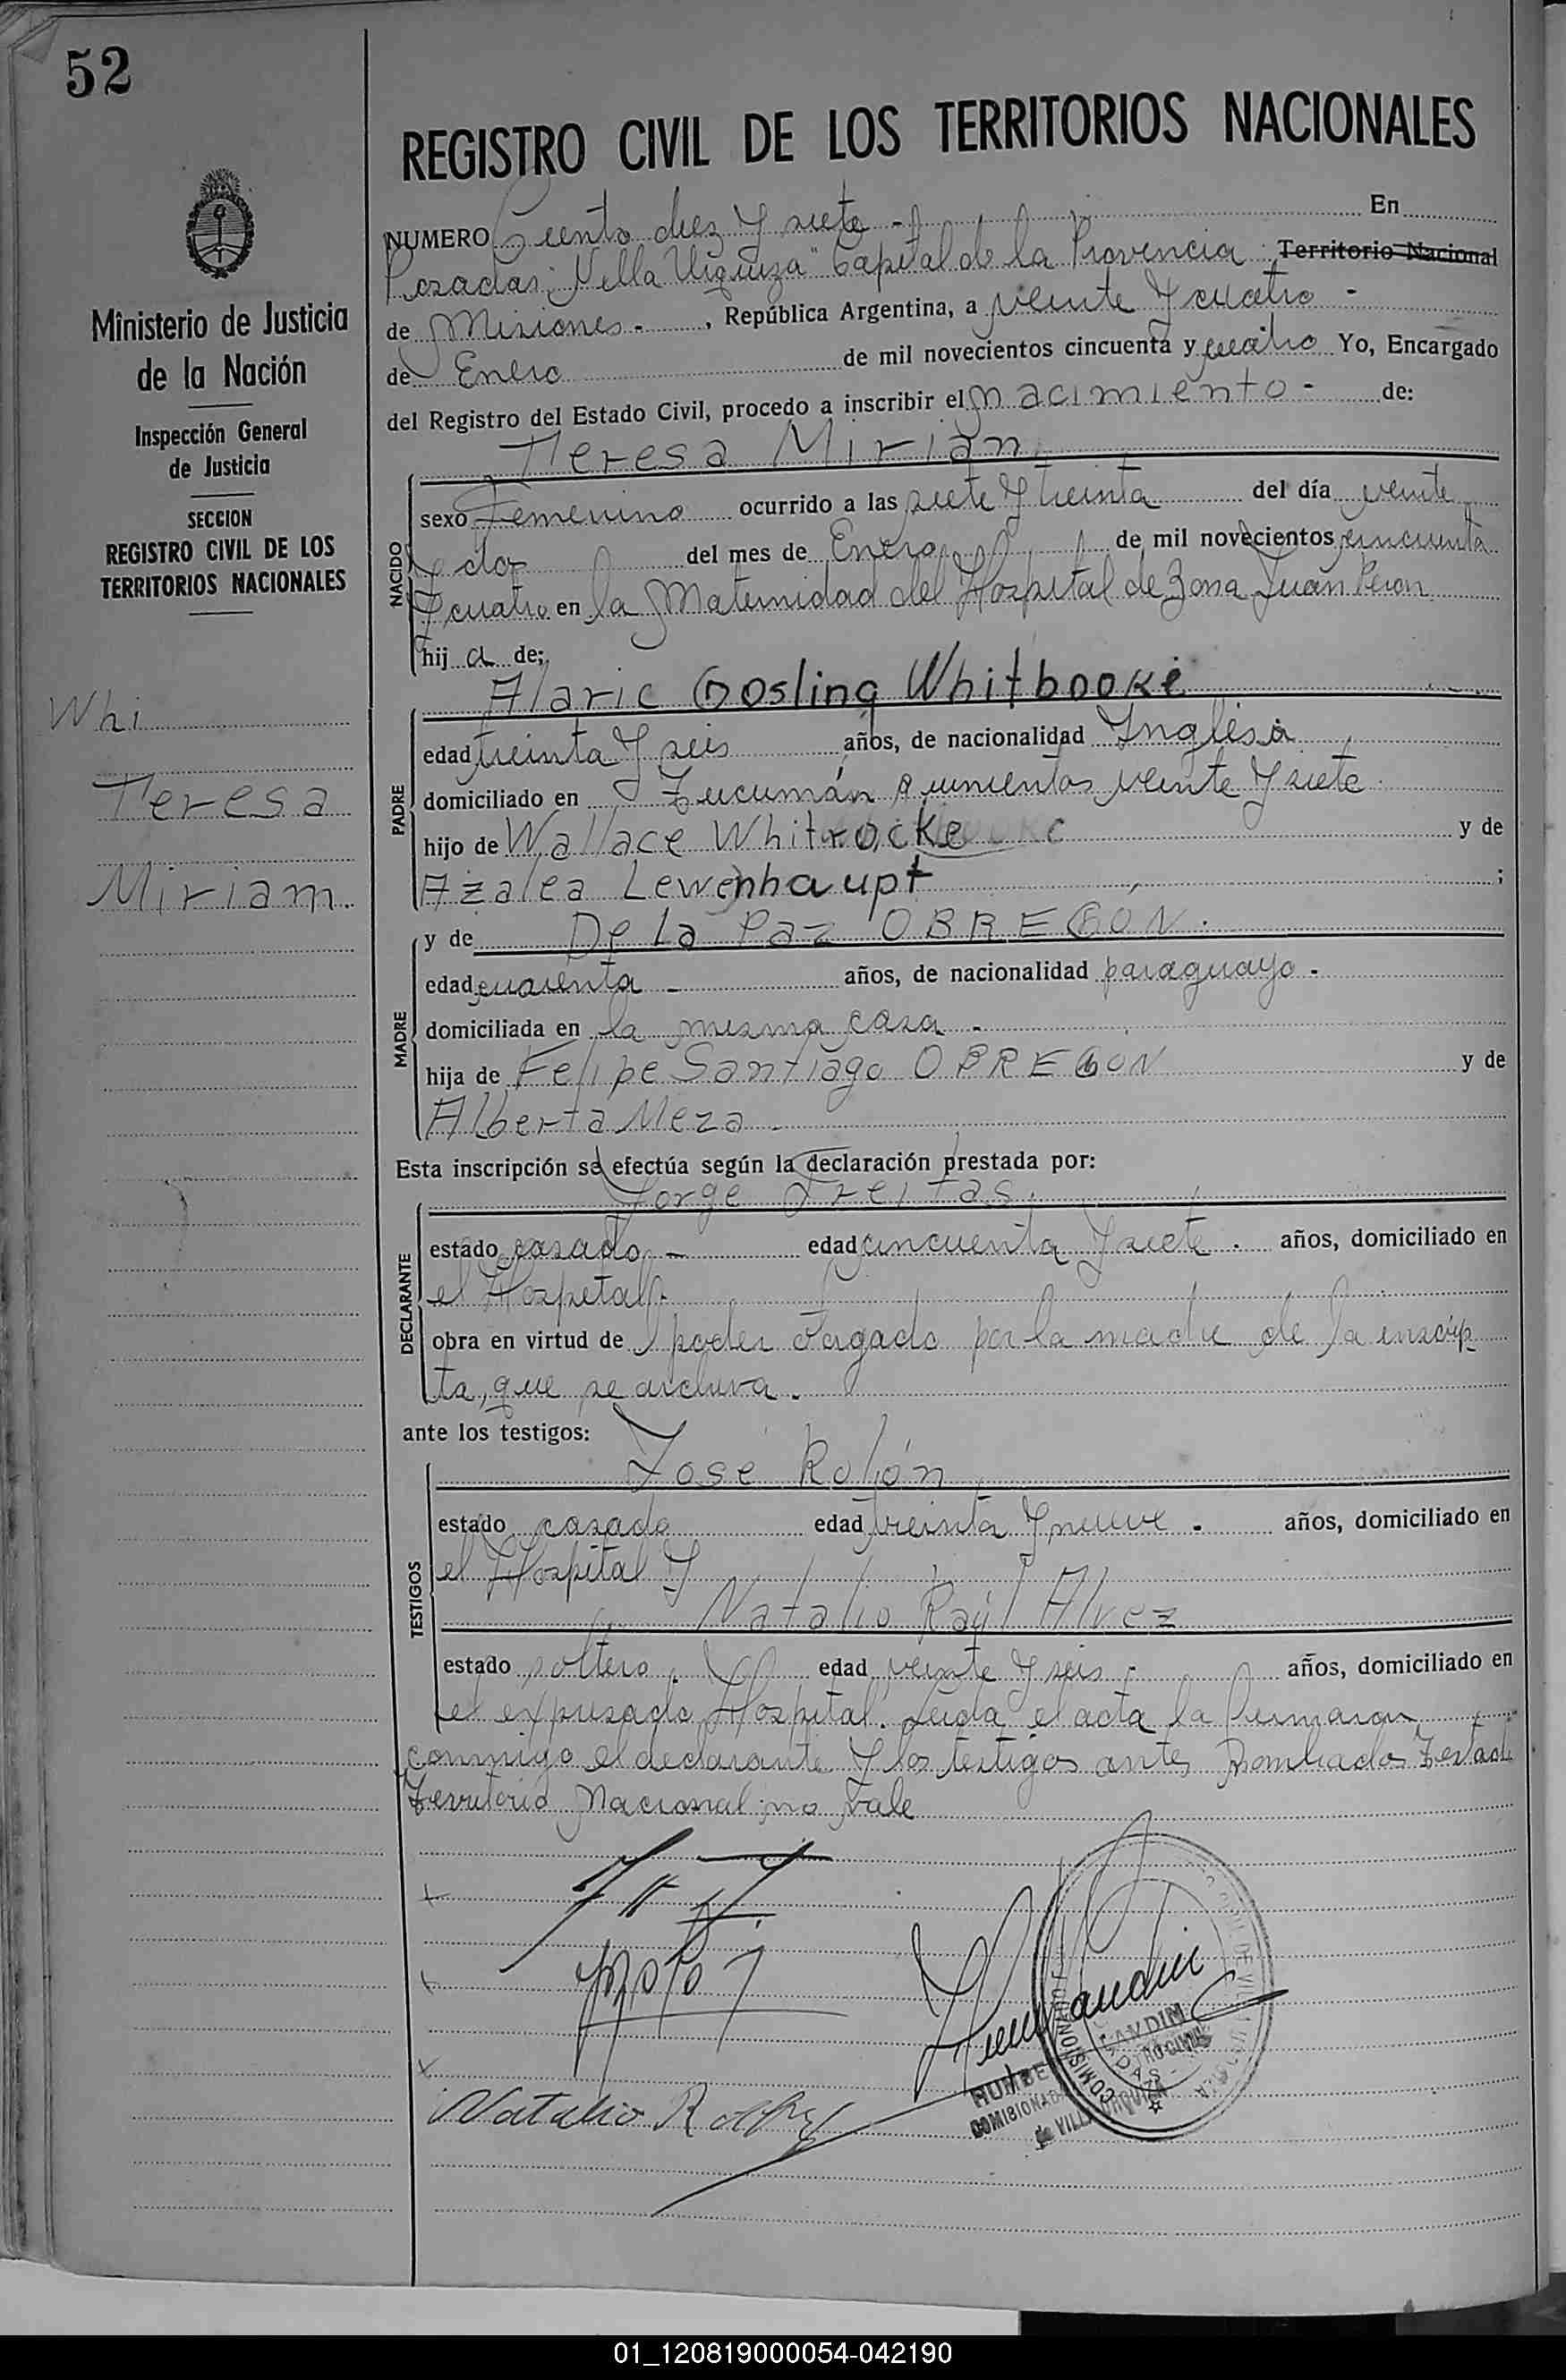 52
REGISTRO CIVIL DE LOS TERRITORIOS NACIONALES
Ministerio de Justicia
de la Nación
Inspección General
de Justicia
SECCION
REGISTRO CIVIL DE LOS
TERRITORIOS NACIONALES
Whi
Teresa
Miriam.
NUMERO Ciento diez y siete - En
Posadas "Villa Urquiza" Capital de la Provincia Territorio Nacional
de Misiones - , República Argentina, a veinte y cuatro -
de Enero de mil novecientos cincuenta y cuatro Yo, Encargado
del Registro del Estado Civil, procedo a inscribir el nacimiento - de:
Teresa Mirian
NACIDO
sexo Femenino ocurrido a las siete y treinta del día veinte
y dos del mes de Enero de mil novecientos cincuenta
y cuatro en la Maternidad del Hospital de Zona Juan Peron
hij a de:
Alaric Gosling Whitbooke
PADRE
edad treinta y seis años, de nacionalidad Inglesa
domiciliado en Tucumán quinientos veinte y siete
hijo de Wallace Whitrocke y de
Azalea Lewenhaupt ;
MADRE
y de De la Paz OBREGON.
edad cuarenta - años, de nacionalidad paraguaya -
domiciliada en la misma casa -
hija de Felipe Santiago OBREGON y de
Alberta Meza -
Esta inscripción se efectúa según la declaración prestada por:
Jorge Freitas.
DECLARANTE
estado casado - edad cincuenta y siete - años, domiciliado en
el Hospital -
obra en virtud de poder otorgado por la madre de la inscrip
ta, que se archiva -
ante los testigos:
José Rolón
TESTIGOS
estado casado edad treinta y nueve - años, domiciliado en
el Hospital y
Natalio Raúl Alvez
estado soltero. edad veinte y seis - años, domiciliado en
el expresado Hospital. Leida el acta la firmaron
conmigo el declarante y los testigos antes nombrados Testado
Territorio Nacional no vale
Natalio R
COMISIONADO
de VILLA URQUIZA
01_120819000054-042190